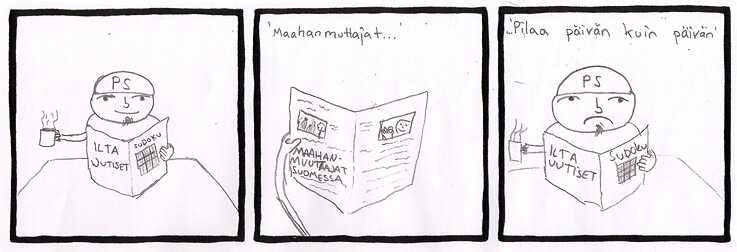 PS
ILTA
UUTISET
SUDOKU
'Maahanmuttajat...'
MAAHAN-
MUUTTAJAT
SUOMESSA
'..Pilaa päivän kuin päivän'
PS
ILTA
UUTISET
SUDOKU